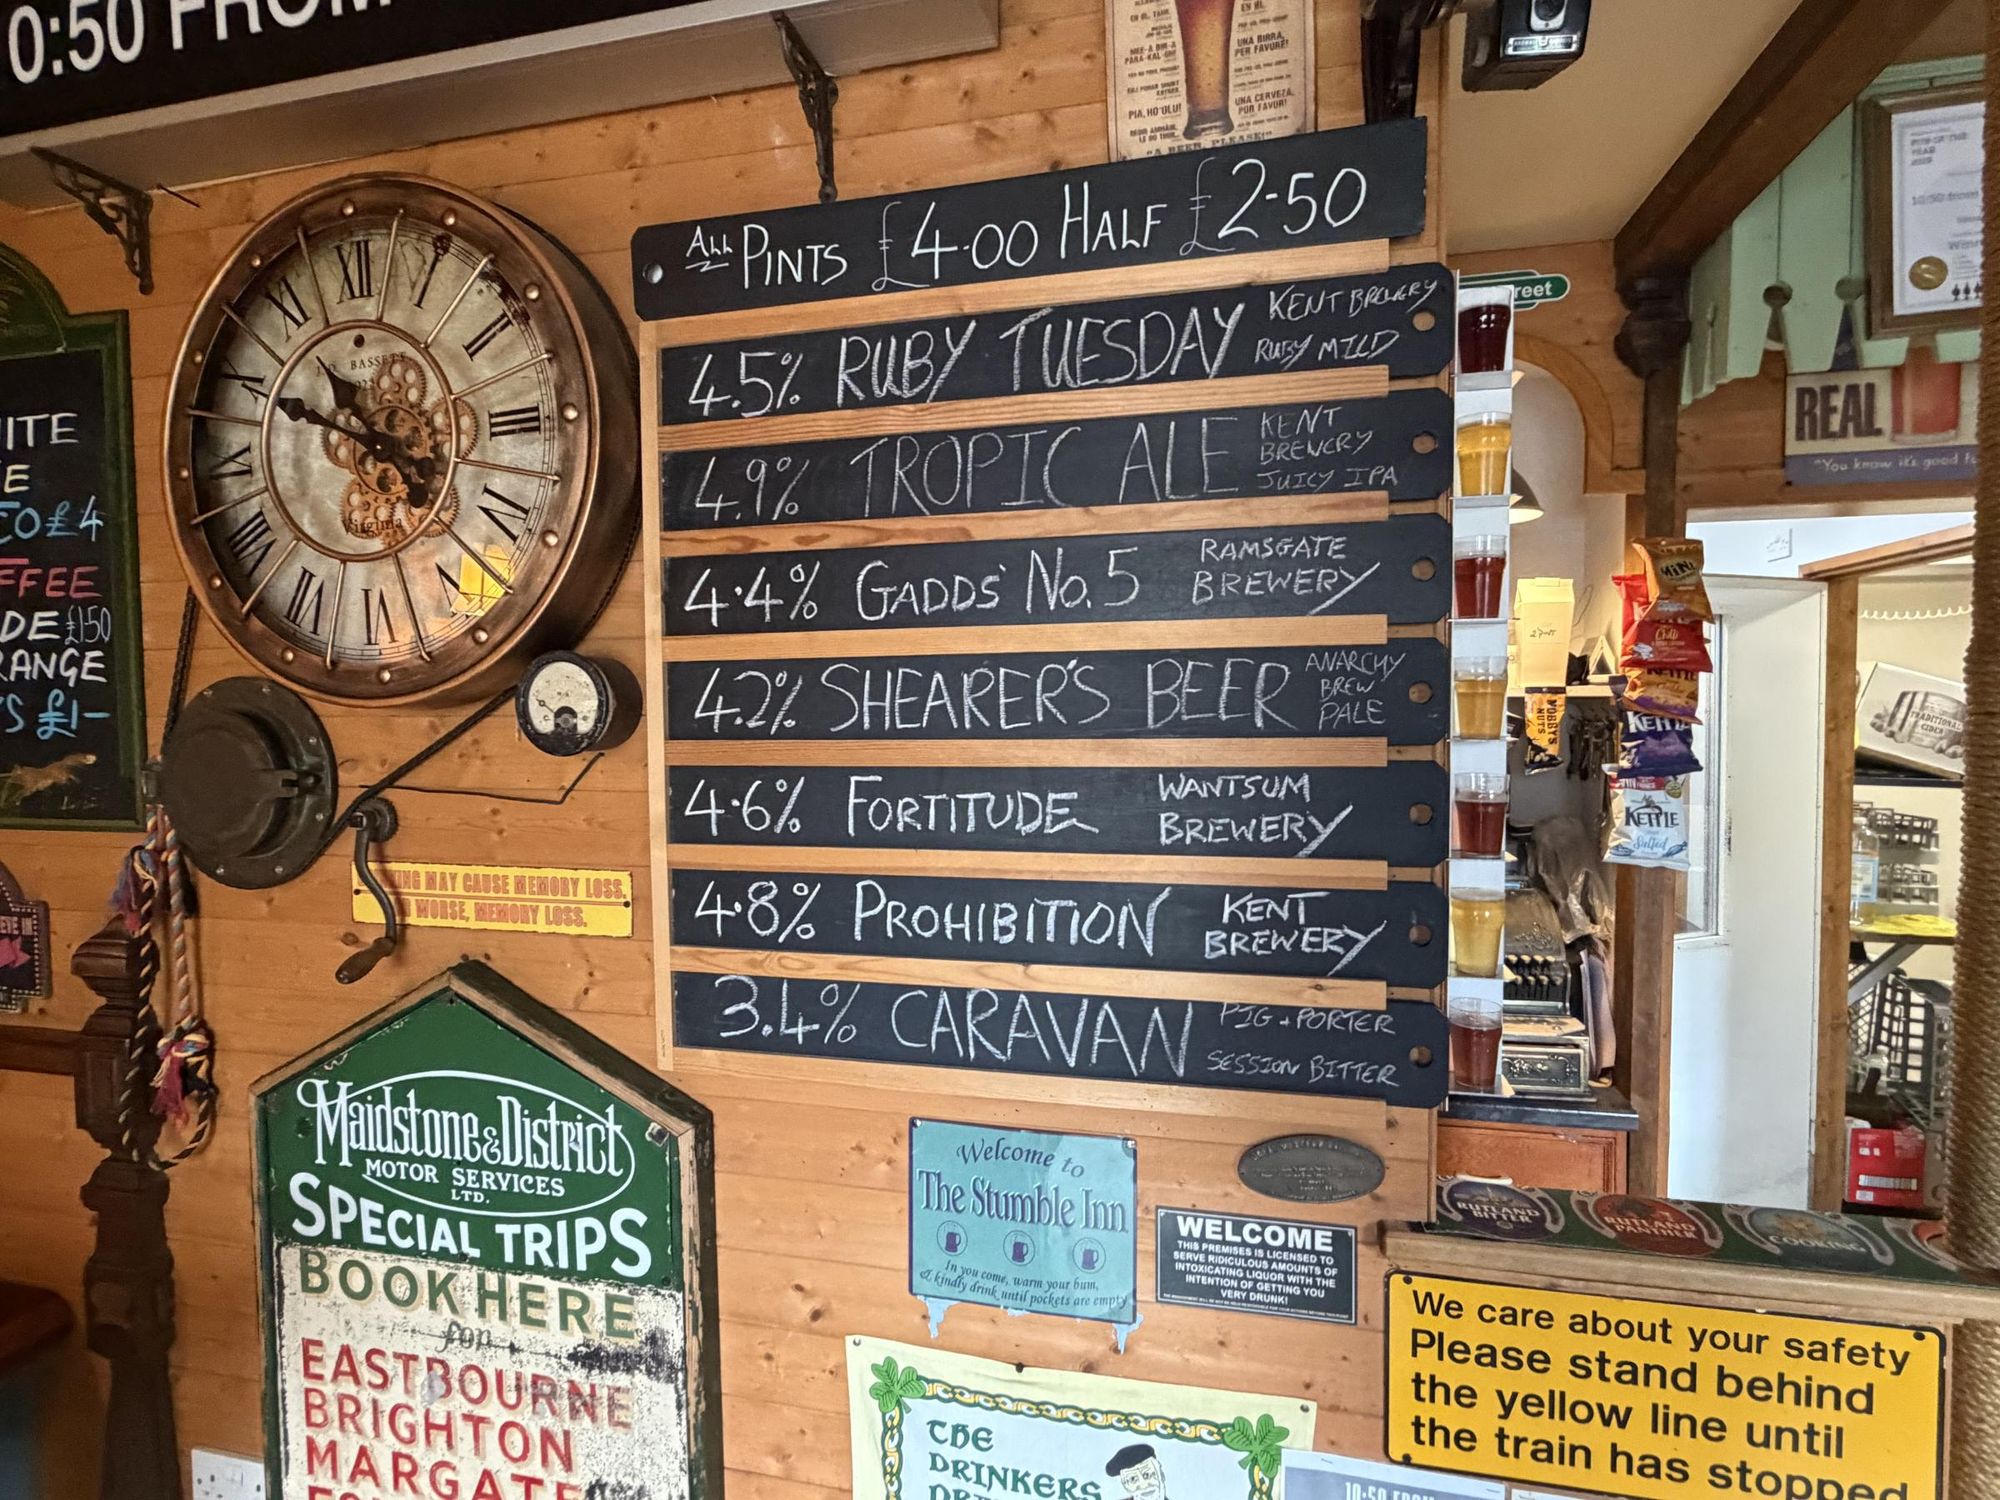 0:50 FROM
EN BIL, TAK!
UNA BIRRA,
PER FAVORE!
PIA, HO'OLU!
UNA CERVEZA,
POR FAVOR!
"A BEER, PLEASE!"
ALL PINTS £4·00 HALF £2·50
4.5% RUBY TUESDAY KENT BREWERY
RUBY MILD
4.9% TROPIC ALE KENT
BREWERY
JUICY IPA
4·4% GADDS' No. 5 RAMSGATE
BREWERY
4.2% SHEARER'S BEER ANARCHY
BREW
PALE
4·6% FORTITUDE WANTSUM
BREWERY
4·8% PROHIBITION KENT
BREWERY
3.4% CARAVAN PIG + PORTER
SESSION BITTER
XII I II III IIII V VI VII VIII IX X XI
BASSET
Virginia
ITE
E
CO £4
FFEE
DE £1·50
RANGE
S £1-
KING MAY CAUSE MEMORY LOSS.
WORSE, MEMORY LOSS.
Maidstone & District
MOTOR SERVICES
LTD.
SPECIAL TRIPS
BOOK HERE
for
EASTBOURNE
BRIGHTON
MARGATE
Welcome to
The Stumble Inn
In you come, warm your bum,
& kindly drink until pockets are empty
WELCOME
THIS PREMISES IS LICENSED TO
SERVE RIDICULOUS AMOUNTS OF
INTOXICATING LIQUOR WITH THE
INTENTION OF GETTING YOU
VERY DRUNK!
THE
DRINKERS
10:50 FROM
RUTLAND
BITTER
RUTLAND
PANTHER
COOKING
We care about your safety
Please stand behind
the yellow line until
the train has stopped
reet
PUB OF THE
YEAR
REAL
"You know it's good
MINI
Chilli
KETTLE
KETTLE
KETTLE
Salted
NOBBY'S
NUTS
TRADITIONAL
CIDER